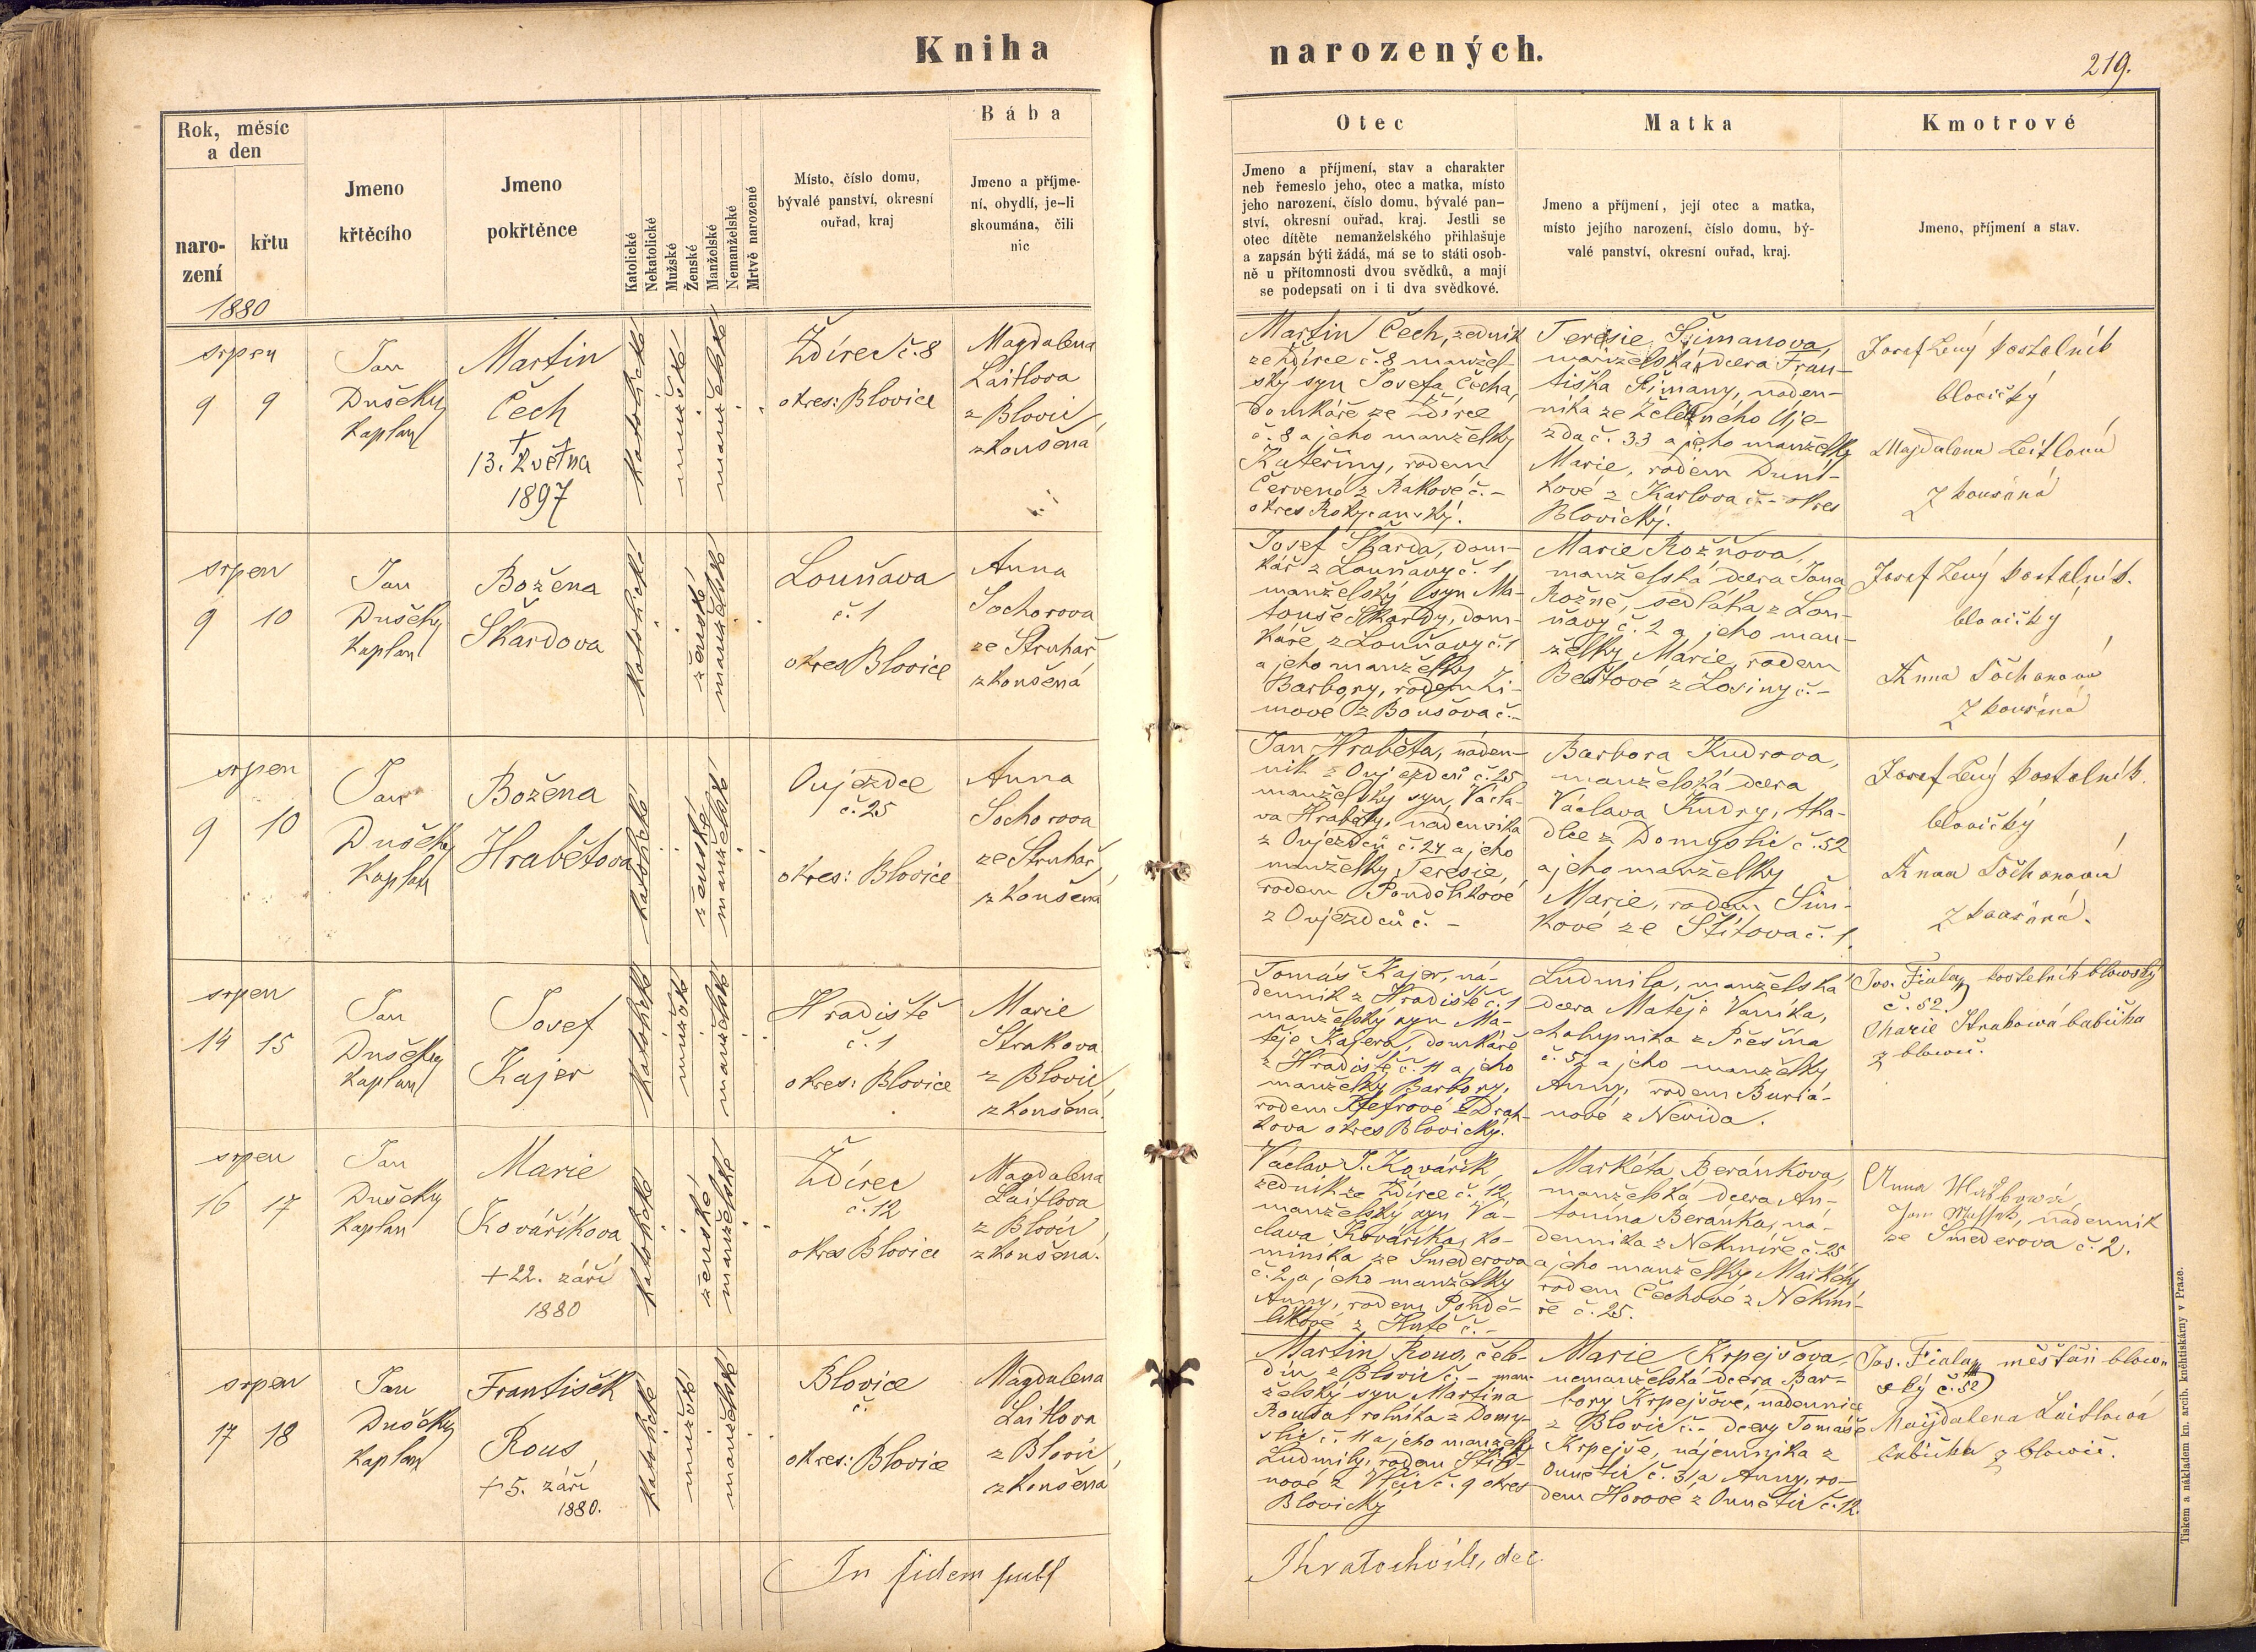 Kniha narozených.
219.
Rok, měsíc
a den
naro-
zení
křtu
Jmeno
křtěcího
Jmeno
pokřtěnce
Katolické
Nekatolické
Mužské
Ženské
Manželské
Nemanželské
Mrtvě narozené
Místo, číslo domu,
bývalé panství, okresní
ouřad, kraj
Bába
Jmeno a příjme-
ní, obydlí, je-li
skoumána, čili
nic
Otec
Jmeno a příjmení, stav a charakter
neb řemeslo jeho, otec a matka, místo
jeho narození, číslo domu, bývalé pan-
ství, okresní ouřad, kraj. Jestli se
otec dítěte nemanželského přihlašuje
a zapsán býti žádá, má se to státi osob-
ně u přítomnosti dvou svědků, a mají
se podepsati on i ti dva svědkové.
Matka
Jmeno a příjmení, její otec a matka,
místo jejího narození, číslo domu, bý-
valé panství, okresní ouřad, kraj.
Kmotrové
Jmeno, příjmení a stav.
1880
srpen
9 9
Jan
Dušek
kaplan
Martin
Čech
+
13. Května
1897
katolické
mužské
manželské
Ždírec č. 8
okres: Blovice
Magdalena
Laitlova
z Blovic
zkoušená
Martin Čech, zedník
ze Ždírce č. 8 manžel-
ský syn Josefa Čecha,
domkáře ze Ždírce
č. 8 a jeho manželky
Kateřiny, rodem
Červené z Rakové č. -
okres Rokycanský.
Teresie Šimanova,
manželská dcera Fran-
tiška Šimany, náden-
níka ze Železného Úje-
zda č. 33 a jeho manželky
Marie, rodem
z Karlova č. - okres
Blovický.
Josef Lený kostelník
blovický
Magdalena Leitlová
zkoušená
srpen
9 10
Jan
Dušek
kaplan
Božena
Škardova
katolické
ženské
manželské
Louňava
č. 1
okres Blovice
Anna
Sochorova
ze Struhař
zkoušená
Josef Škarda, dom-
kář z Louňavy č. 1
manželský syn Ma-
touše Škardy, dom-
káře z Louňavy č. 1
a jeho manželky
Barbory, rodem Zi-
mové z Boušova č. -
Marie Rožňova,
manželská dcera Jana
Rožně, sedláka z Lou-
ňavy č. 2 a jeho man-
želky Marie, rodem
z Losiny č. -
Josef Lený kostelník.
blovický
Anna Sochorová
zkoušená
srpen
9 10
Jan
Dušek
kaplan
Božena
Hrabětova
katolické
ženské
manželské
Oujezdce
č. 25
okres: Blovice
Anna
Sochorova
ze Struhař
zkoušená
Jan Hraběta, náden-
ník z Oujezdců č. 25
manželský syn Václa-
va Hraběty, nádenníka
z Oujezdců č. 24 a jeho
manželky Teresie,
rodem Pondělíkové
z Oujezdců č. -
Barbora Kudrova,
manželská dcera
Václava Kudry, tka-
dlce z Domyslic č. 52
a jeho manželky
Marie, rodem Šim-
kové ze Štítova č. 1.
Josef Lený kostelník.
blovický
Anna Sochorová
zkoušená.
srpen
14 15
Jan
Dušek
kaplan
Josef
Kajer
katolické
mužské
manželské
Hradiště
č. 1
okres: Blovice
Marie
Strakova
z Blovic
zkoušená.
Tomáš Kajer, ná-
denník z Hradiště č. 1
manželský syn Ma-
těje Kajera, domkáře
z Hradiště č. 11 a jeho
manželky Barbory,
rodem z Drah-
kova okres Blovický.
Ludmila, manželská
dcera Matěje Vaníka,
chalupníka z Přešína
č. 57 a jeho manželky
Anny, rodem Buriá-
nové z Nevida.
Jos. Fiala, kostelník blowský
č. 52.
Marie Strakowá babička
z blowic.
srpen
16 17
Jan
Dušek
kaplan
Marie
Kováříkova
+ 22. září
1880
katolické
ženské
manželské
Ždírec
č. 12
okres Blovice
Magdalena
Laitlova
z Blovic
zkoušená.
Václav J. Kovářík,
zedník ze Ždírce č. 12,
manželský syn Vá-
clava Kováříka, ko-
miníka ze Smederova
č. 2, a jeho manželky
Anny, rodem Pondě-
líkové z Hutě č. -
Markéta Beránkova,
manželská dcera An-
tonína Beránka, ná-
denníka z Nekmíře č. 25
a jeho manželky Markéty,
rodem Čechové z Nekmí-
ře č. 25.
Anna
Jan nádenník
ze Smederova č. 2.
srpen
17 18
Jan
Dušek
kaplan
František
Rous
+ 5. září
1880.
katolické
mužské
manželské
Blovice
č.
okres: Blovice
Magdalena
Laitlova
z Blovic
zkoušená
Martin Rous, čele-
dín z Blovic č. - man-
želský syn Martina
Rousa, rolníka z Domy-
slic č. 11 a jeho manželky
Ludmily, rodem
z Vlčic č. 9 okres
Blovický
Marie Krpejšova,
nemanželská dcera Bar-
bory Krpejšové, nádennice
z Blovic č. - dcery Tomáše
Krpejše, nájemníka z
Ounětic č. 31 a Anny, ro-
dem Horové z Ounětic č. 12.
Jos. Fiala, měšťan blow-
ský č. 52
Magdalena Laitlowá
babička z blowic.
In fidem publ
Chratochvíl, dec.
Tiskem a nákladem kn. arcib. knihtiskárny v Praze.